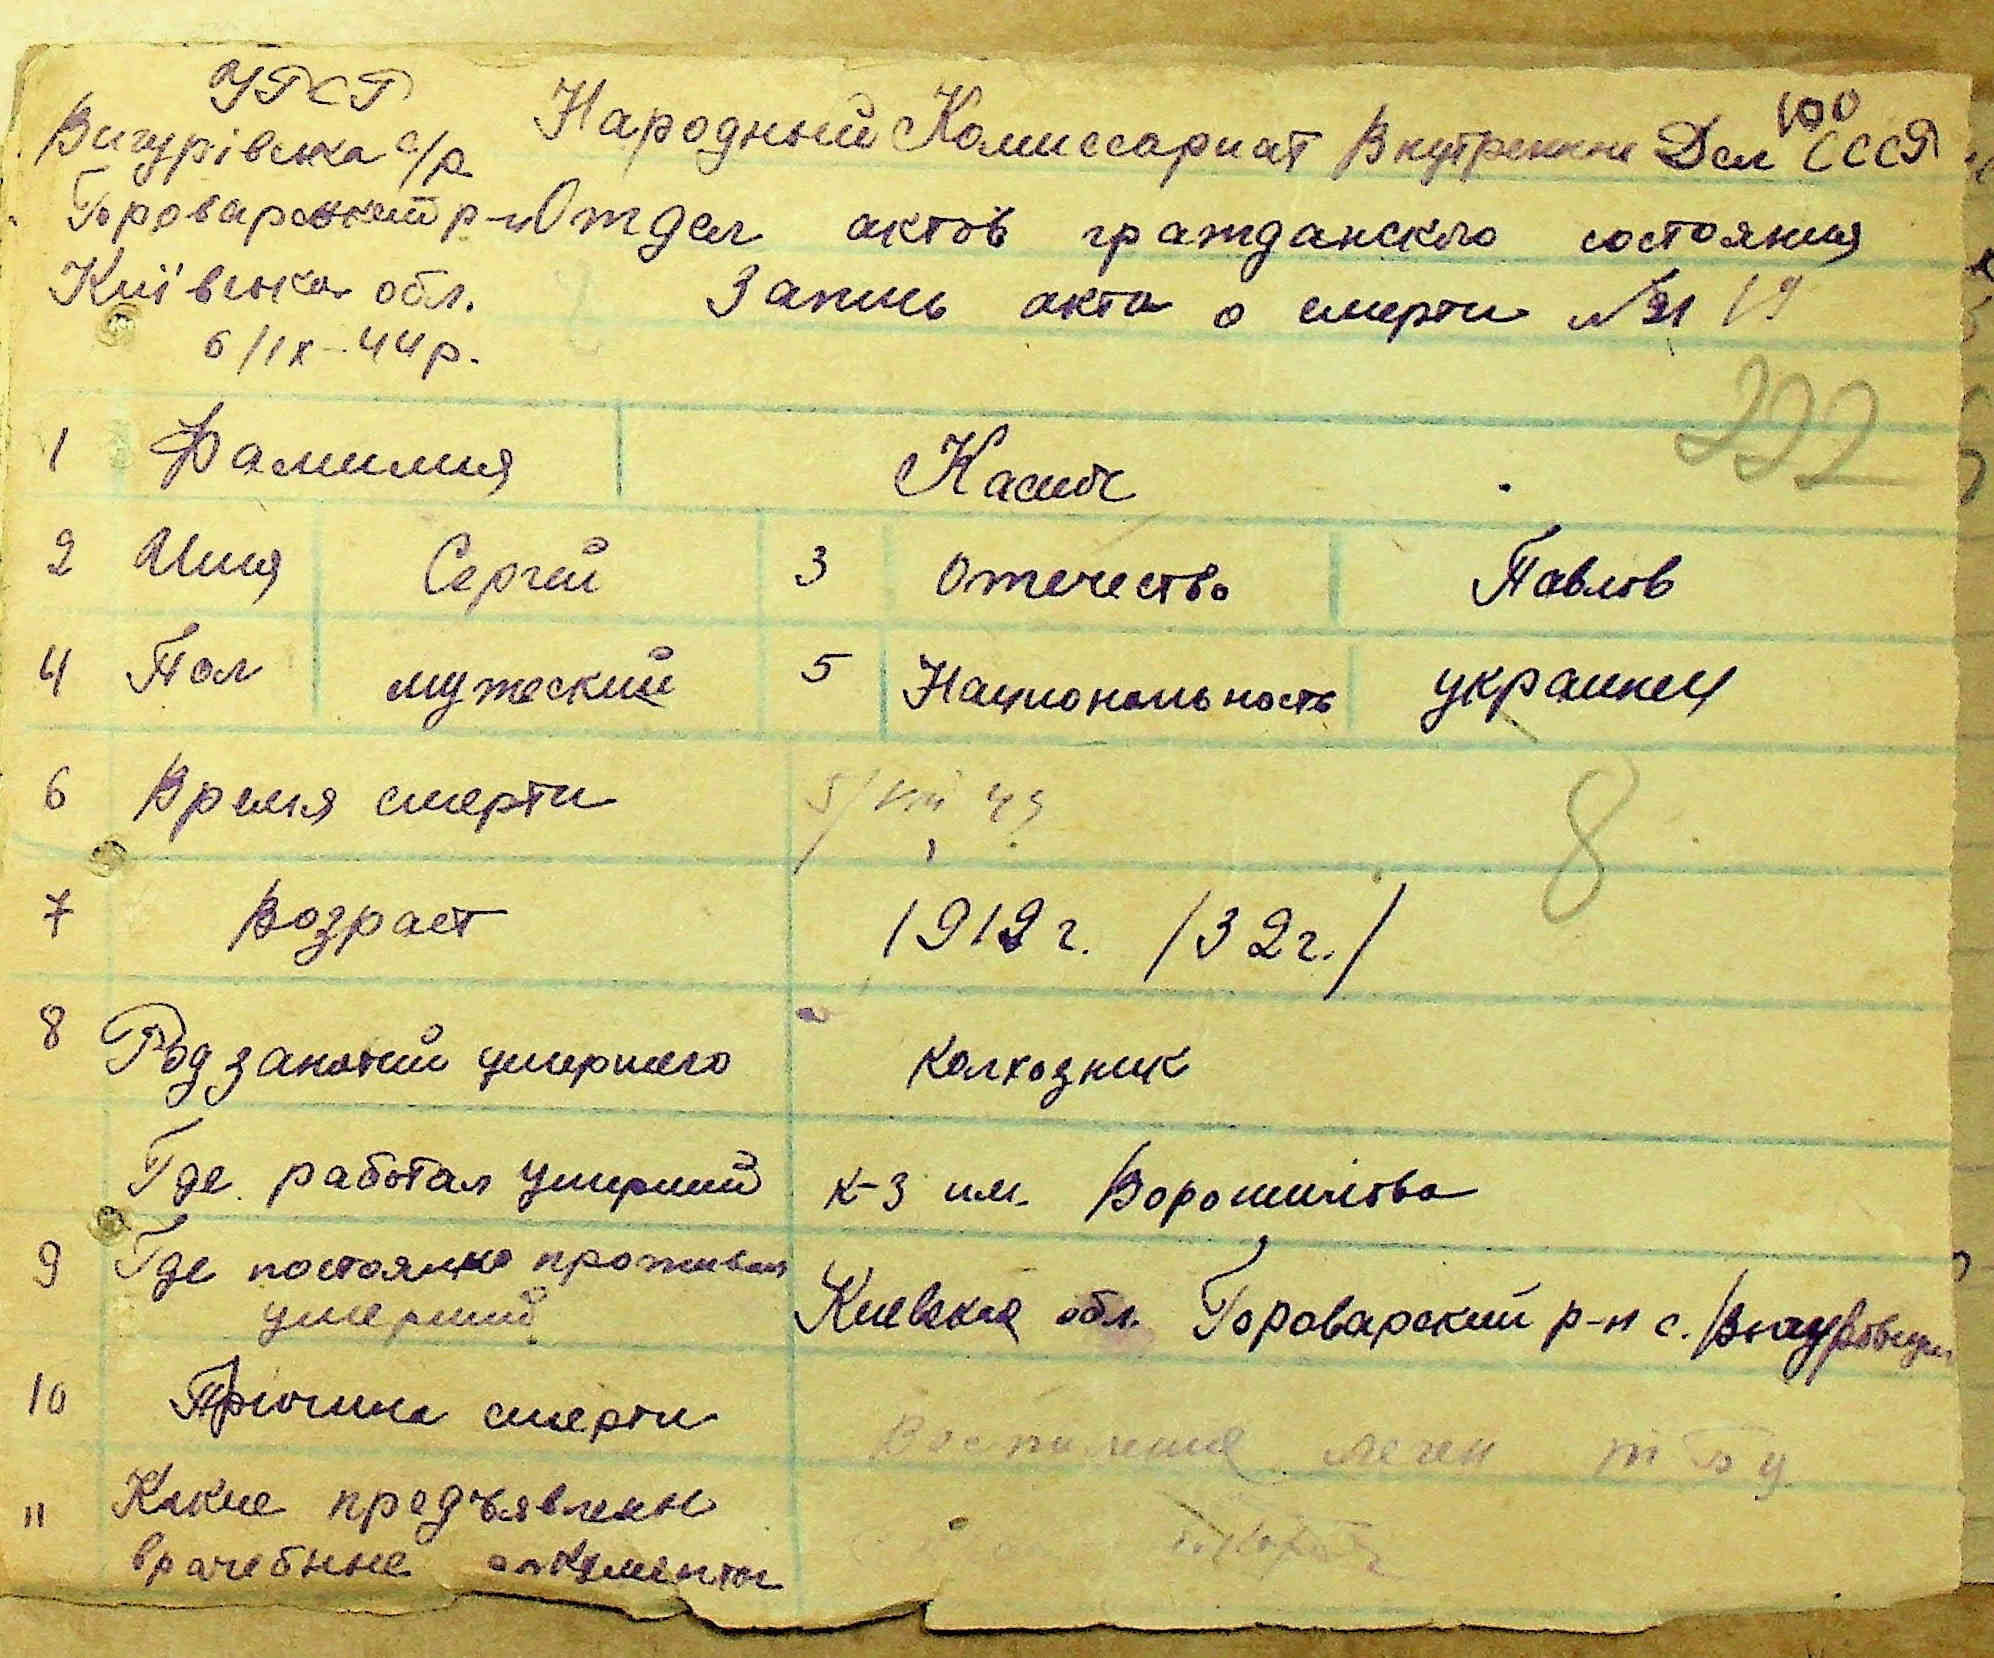 УРСР
100
Вигурівська с/р Народный Комиссариат Внутренние Дел СССР
Броварський р-н Отдел актов гражданского состояния
Київська обл. Запись акта о смерти № 21 19
6/IX-44р.
222
1 Фамилия Касич
2 Имя Сергей 3 Отечество Павлов
4 Пол мужеский 5 Национальность украинец
6 Время смерти 5/VIII 43
8
7 Возраст 1912 г. /32 г./
8 Род занятий умершего колхозник
Где работал умерший к-з им. Ворошилова
9 Где постоянно проживал
умерший Киевская обл. Броварский р-н с.
10 Прічина смерти Воспаление леген
11 Какие предъявлены
врачебные документы